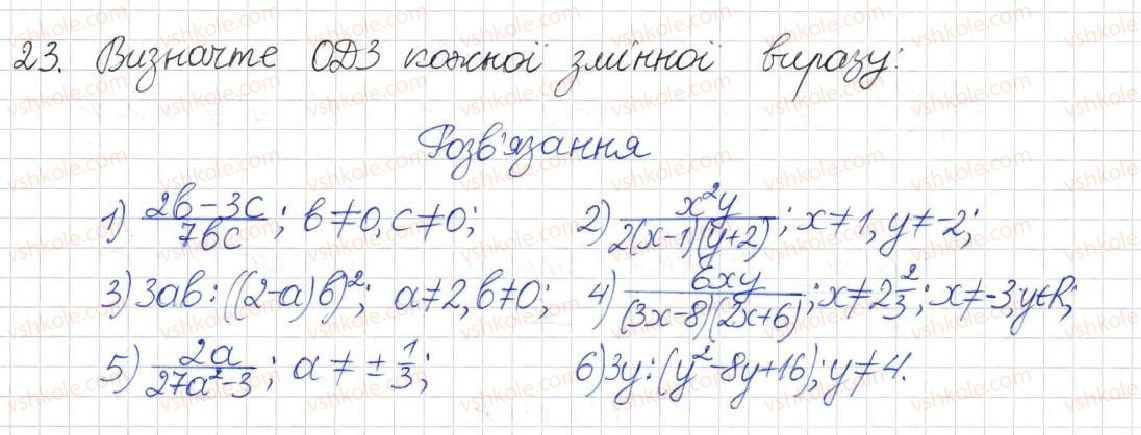 23. Визначте ОДЗ кожної змінної виразу:
Розв'язання
1) (2b-3c)/(7bc); b≠0, c≠0; 2) x²y/(2(x-1)(y+2)); x≠1, y≠-2;
3) 3ab:((2-a)b)²; a≠2, b≠0; 4) 6xy/((3x-8)(2x+6)); x≠2 2/3; x≠-3, y∈R;
5) 2a/(27a²-3); a≠±1/3; 6) 3y:(y²-8y+16); y≠4.